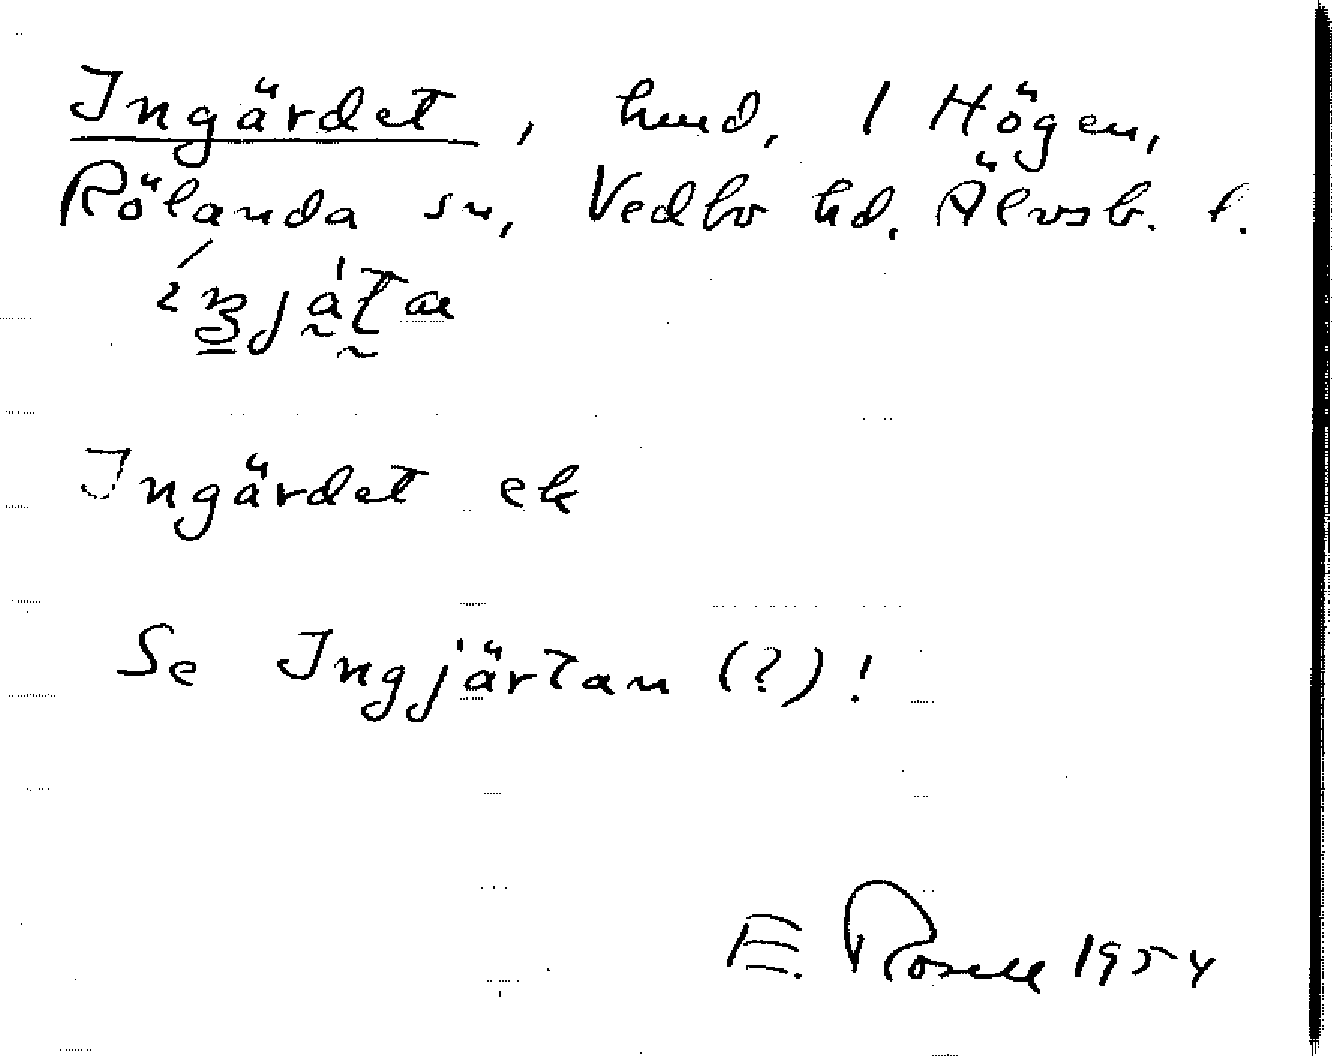 Ingärdet, hmd, 1 Högen,
Rölanda sn, Vedbo hd. Älvsb. l.
Ingärdet ek
Se Ingjärtan (?)!
E. Rosell 1954